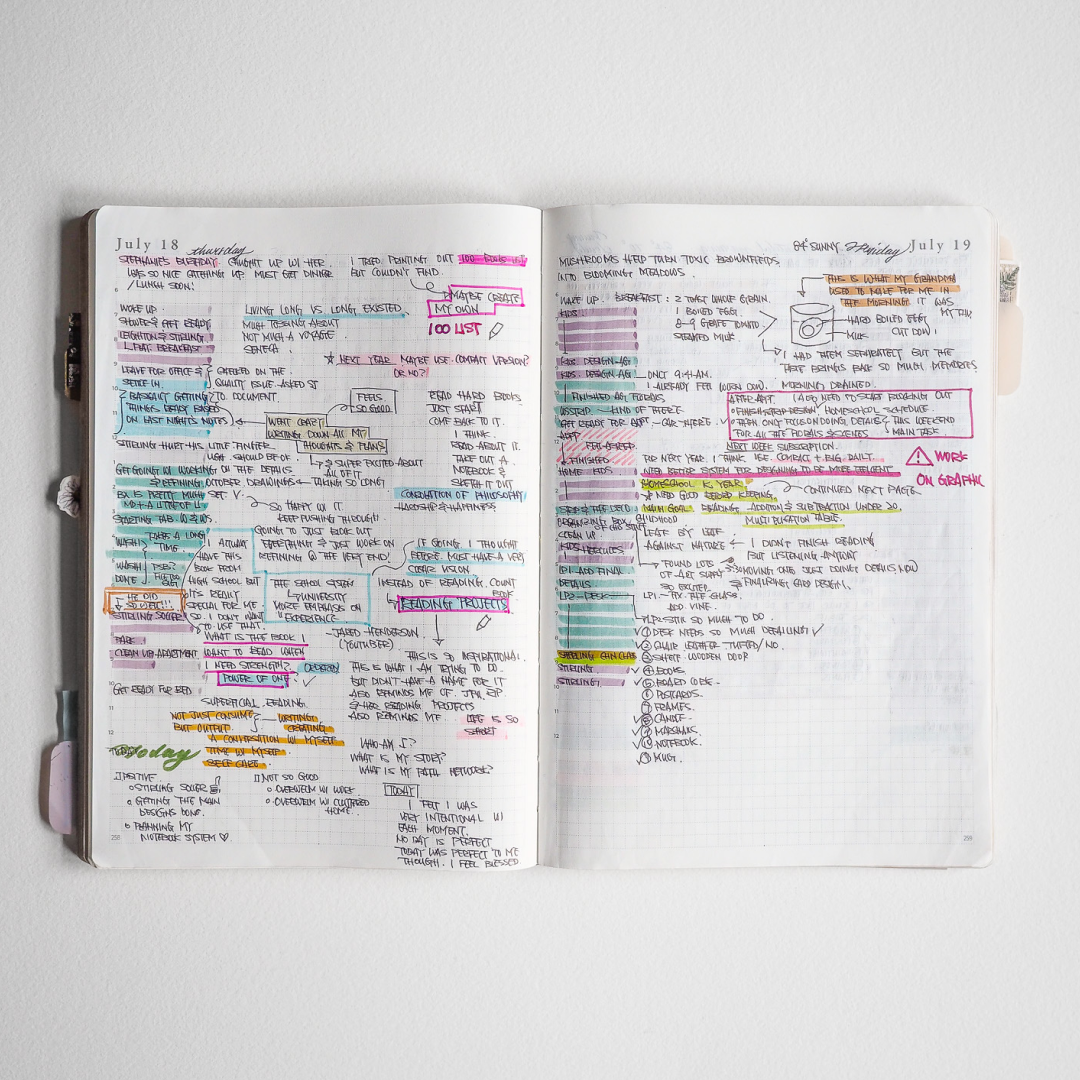 July 18 thursday
STEPHANIE'S BIRTHDAY. CAUGHT UP W/ HER.
WAS SO NICE CATCHING UP. MUST GET DINNER
/ LUNCH SOON!
I TRIED PRINTING OUT 100 BOOKS LIST
BUT COULDN'T FIND.
MAYBE CREATE
MY OWN
100 LIST
WOKE UP.
SHOWER & GET READY
LEIGHTON & STIRLING
EAT BREAKFAST
LIVING LONG VS LONG EXISTED
MUCH TOSSING ABOUT
NOT MUCH A VOYAGE
SENECA
NEXT YEAR. MAYBE USE COMPACT VERSION?
OR NO?
LEAVE FOR OFFICE &
SETTLE IN.
BASICALLY GETTING
THINGS READY BASED
ON LAST NIGHTS NOTES
CAUGHT ON THE
QUALITY ISSUE. ASKED ST
TO DOCUMENT.
FEELS
SO GOOD
WENT CRAZY
WRITING DOWN ALL MY
THOUGHTS & PLANS
& SUPER EXCITED ABOUT
ALL OF IT
READ HARD BOOKS
JUST START
COME BACK TO IT.
I THINK
READ ABOUT IT.
TAKE OUT A
NOTEBOOK &
SKETCH IT OUT
STIRLING HURT HIS LITTLE FINGER.
UGH. SHOULD BE OK
GET GOING W/ WORKING ON THE DETAILS
& REFINING OCTOBER DRAWINGS ← TAKING SO LONG
SO HAPPY W/ IT
KEEP PUSHING THROUGH.
CONSOLATION OF PHILOSOPHY
HARDSHIP & HAPPINESS
GOING TO JUST BLOCK OUT
EVERYTHING & JUST WORK ON
REFINING @ THE VERY END!
TAKE A LONG
TIME.
HE DID
SO WELL!!!
STIRLING SOCCER
HAVE THIS
BOOK FROM
HIGH SCHOOL BUT
IT'S REALLY
SPECIAL FOR ME
SO I DON'T WANT
TO USE THAT.
THE SCHOOL SYSTEM
UNIVERSITY
MORE EMPHASIS ON
EXPERIENCE.
IF GOING I THOUGHT
BEFORE. MUST HAVE A VERY
CLEAR VISION
INSTEAD OF READING. COUNT
BOOK
READING PROJECTS
PARK.
CLEAN UP APARTMENT
WHAT IS THE BOOK I
WANT TO READ WHEN
I NEED STRENGTH?
POWER OF ONE
ORDERED
JARED HENDERSON
(YOUTUBER)
THIS IS SO INSPIRATIONAL.
THIS IS WHAT I AM TRYING TO DO.
BUT DIDN'T HAVE A NAME FOR IT
ALSO REMINDS ME OF
& HER READING PROJECTS
ALSO REMINDS ME
LIFE IS SO
SHORT
GET READY FOR BED
SUPERFICIAL READING
NOT JUST CONSUME
BUT OUTPUT.
WRITING
CREATING
A CONVERSATION W/ MYSELF
TIME W/ MYSELF
SELF CARE.
WHO AM I?
WHAT IS MY STORY?
WHAT IS MY PATH NETWORK?
Today
POSITIVE.
STIRLING SOCCER
GETTING THE MAIN
DESIGNS DONE.
PLANNING MY
NOTEBOOK SYSTEM ♡
NOT SO GOOD
OVERWELM W/ WORK
OVERWELM W/ CLUTTERED
HOME.
TODAY
I FELT I WAS
VERY INTENTIONAL W/
EACH MOMENT.
NO DAY IS PERFECT
TODAY WAS PERFECT TO ME
THOUGH. I FEEL BLESSED.
84° SUNNY Friday July 19
MUSHROOMS HELP TURN TOXIC BROWNFIELDS
INTO BLOOMING MEADOWS.
THIS IS WHAT MY GRANDMA
USED TO MAKE FOR ME IN
THE MORNING. IT WAS
HARD BOILED EGG
CUT DOWN
MILK
WAKE UP. BREAKFAST: 2 TOAST WHOLE GRAIN.
1 BOILED EGG
8-9 GRAPE TOMATO
STEAMED MILK
KIDS
I HAD THEM SEPARATELY BUT THE
THAT BRINGS BACK SO MANY MEMORIES
KIDS DESIGN AGI
KIDS DESIGN AGI ONLY 9:41AM.
I ALREADY FEEL WORN OUT. MORNING DRAINED.
FINISHED AGI FLORALS
KIND OF THERE
GET READY FOR APPT.
APPT
FINISHED
HOME KIDS
AFTER APPT. I ALSO NEED TO START BLOCKING OUT
FINISH DESIGN HOMESCHOOL SCHEDULE.
THEN ONLY FOCUS ON DOING DETAILS THIS WEEKEND
FOR ALL THE FLORALS & SCENES MAIN TASK
NEXT WEEK SUBSCRIPTION.
FOR NEXT YEAR I THINK USE COMPACT & BIG DAILY.
NEED BETTER SYSTEM FOR DESIGNING TO BE MORE EFFICIENT
WORK
ON GRAPHIC
HOMESCHOOL 1C YEAR
NEED GOOD RECORD KEEPING
CONTINUED NEXT PAGE
MAIN GOAL. READING. ADDITION & SUBTRACTION UNDER 20.
MULTIPLICATION TABLE.
CHILDHOOD
CLEAN UP
KIDS HERCULES
LEAF BY LEAF
AGAINST NATURE ← I DIDN'T FINISH READING
BUT LISTENING ANYWAY
FOUND LOTS
OF ART STUFF
SO EXCITED
MOVING ONTO JUST DOING DETAILS NOW
& FINALIZING CARD DESIGN.
LP1 ADD FINAL
DETAILS
LP2 - DESK
LP1 - FIX THE GLASS.
ADD VINE.
LP2 - STILL SO MUCH TO DO.
① DESK NEEDS SO MUCH DETAILING ✓
② CHAIR LEATHER TUFTED/NO.
③ SHELF WOODEN DOOR
④ BOOKS
⑤ BOARD CORK.
⑥ POSTCARDS.
⑦ FRAMES.
⑧ CANDLE
⑨ MARSHMS.
⑩ NOTEBOOK.
⑪ MUG.
STIRLING
STIRLING.
258
259